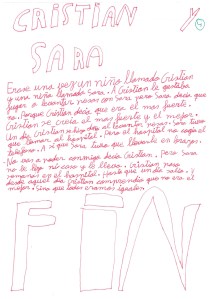 CRISTIAN Y
SARA
Erase una vez un niño llamado Cristian
y una niña llamada Sara. A Cristian le gustaba
jugar a levantar pesas con Sara pero Sara decía que
no. Porque Cristian decía que era el mas fuerte.
Cristian se creía el mas fuerte y el mejor.
Un día Cristian se hizo daño al levantar pesas. Sara tuvo
que llamar al hospital. Pero el hospital no cogía el
telefono. A si que Sara tuvo que llevarle en brazos.
No vas a poder conmigo decía Cristian. Pero Sara
no le hizo ni caso y le llevó. Cristian
en el hospital. Hasta que un día salio. Y
desde aquel día Cristian comprendio que no era el
mejor. Sino que todos eramos iguales.
FIN